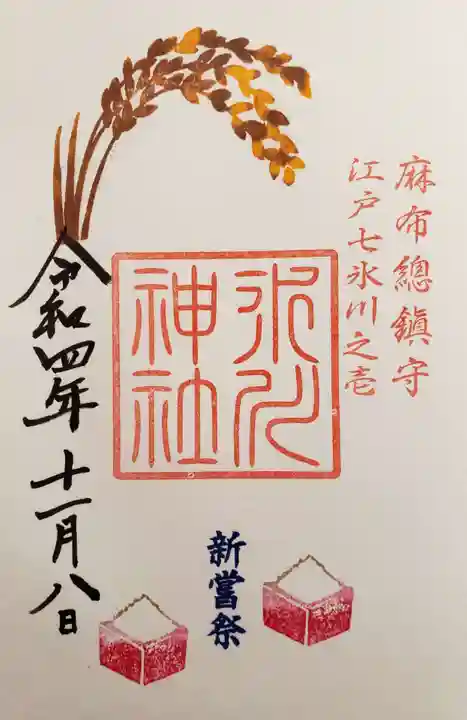 麻布總鎮守
江戸七氷川之壱
氷川
神社
新嘗祭
令和四年十一月八日